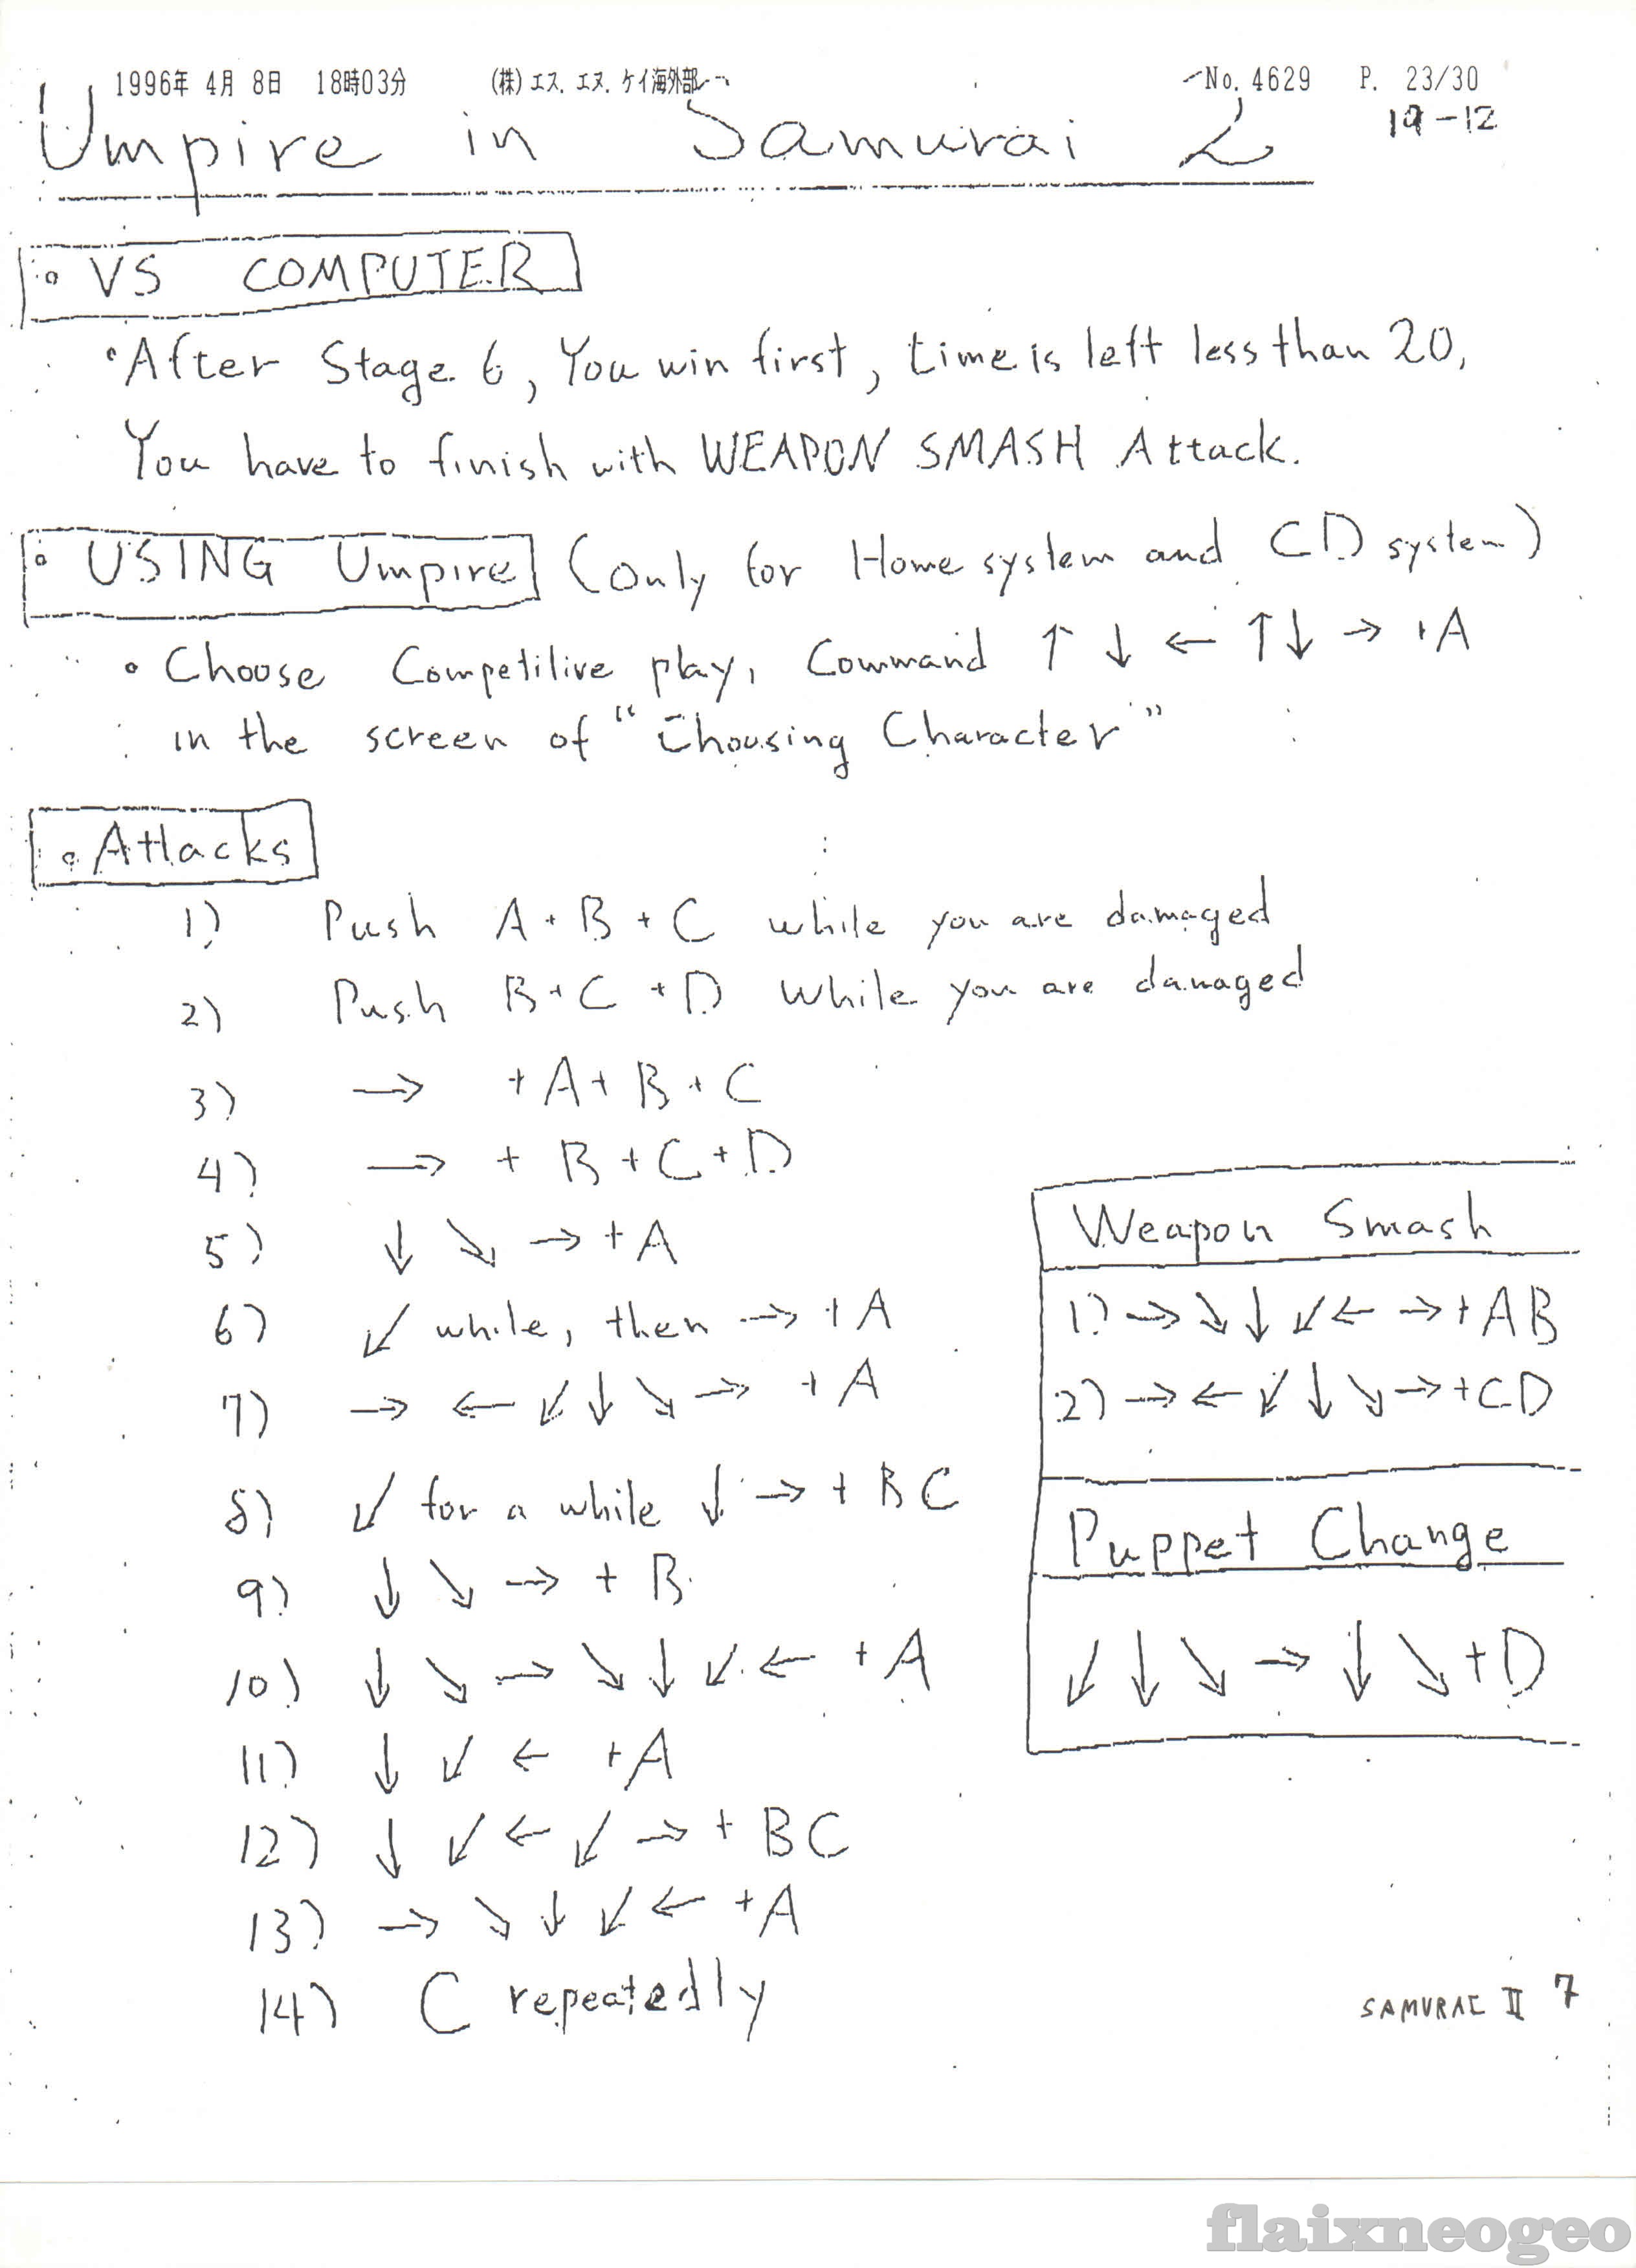 1996年 4月 8日 18時03分 (株)エス.エヌ.ケイ海外部 No. 4629 P. 23/30
19-12
Umpire in Samurai 2
• VS COMPUTER
• After Stage 6, You win first, time is left less than 20,
You have to finish with WEAPON SMASH Attack.
• USING Umpire (Only for Home system and CD system)
• Choose Competitive play, Command ↑ ↓ ← ↑ ↓ → +A
in the screen of "Choosing Character"
• Attacks
1) Push A+B+C while you are damaged
2) Push B+C+D while you are damaged
3) → +A+B+C
4) → +B+C+D
5) ↓ ↘ → +A
6) ↙ while, then → +A
7) → ← ↙ ↓ ↘ → +A
8) ↙ for a while ↓ → + BC
9) ↓ ↘ → + B
10) ↓ ↘ → ↘ ↓ ↙ ← +A
11) ↓ ↙ ← +A
12) ↓ ↙ ← ↙ → + BC
13) → ↘ ↓ ↙ ← +A
14) C repeatedly
Weapon Smash
1) → ↘ ↓ ↙ ← → +AB
2) → ← ↙ ↓ ↘ → +CD
Puppet Change
↙ ↓ ↘ → ↓ ↘ +D
SAMURAI II 7
flaixneogeo